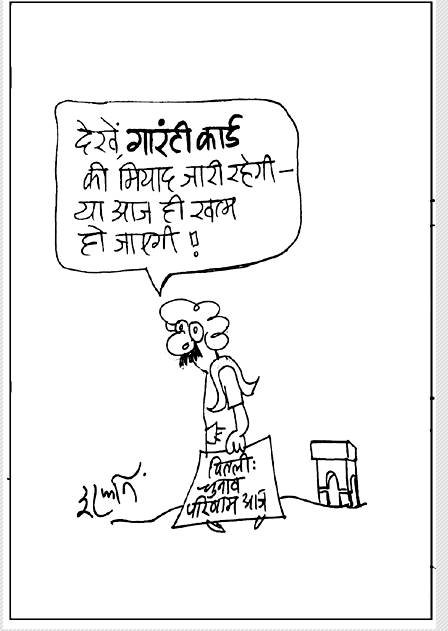 देखें, गारंटी कार्ड
की मियाद जारी रहेगी –
या आज ही खत्म
हो जाएगी !
दिल्ली:
चुनाव
परिणाम आज
इरफान